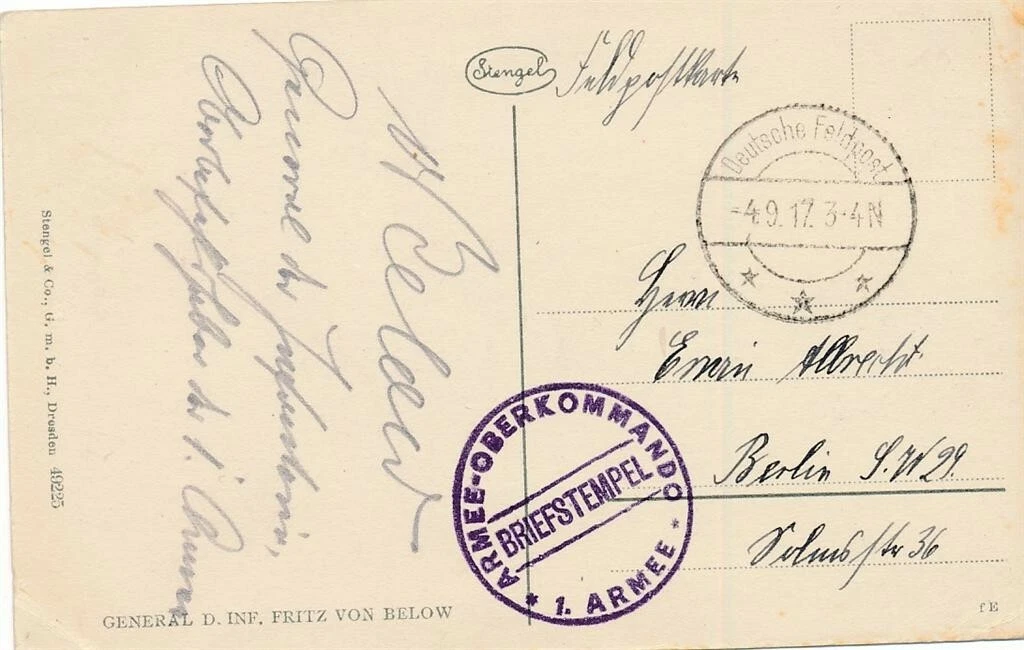 Stengel
Feldpostkarte
Deutsche Feldpost
-4.9.17. 3-4N
Herrn
Erwin Albrecht
Berlin S.W 29.
Solmsstr 36
ARMEE-OBERKOMMANDO
BRIEFSTEMPEL
* 1. ARMEE *
v Below
General der Infanterie,
Oberbefehlshaber der 1. Armee
Stengel & Co., G. m. b. H., Dresden 49225
GENERAL D. INF. FRITZ VON BELOW
f E